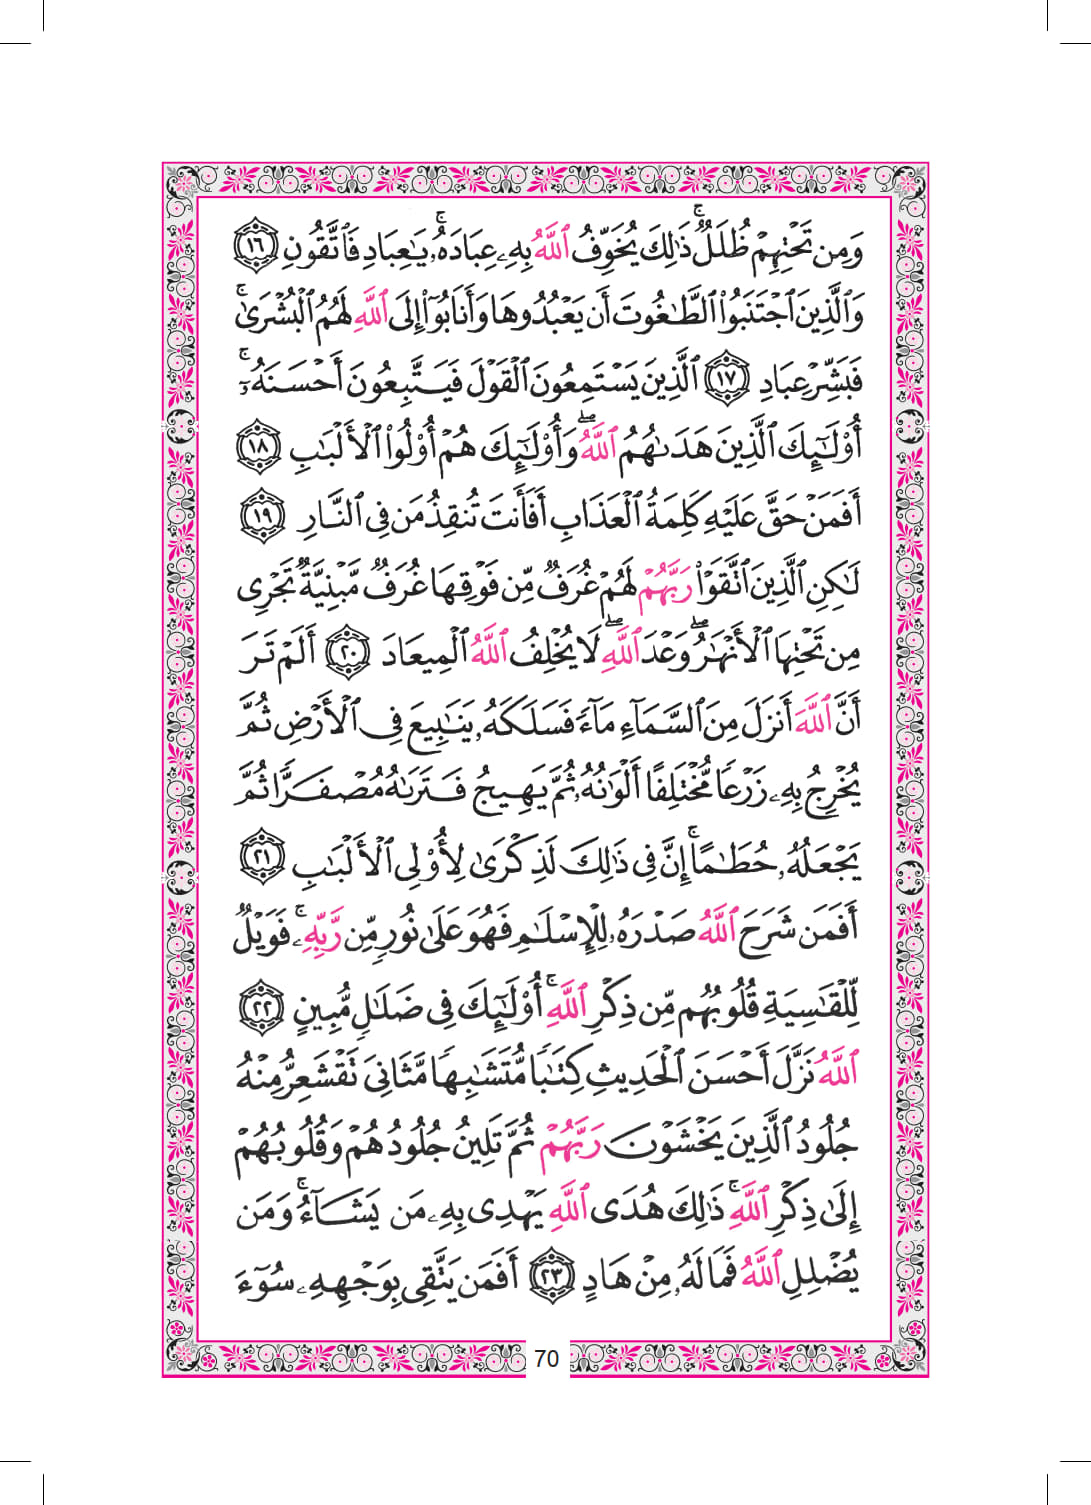 وَمِن تَحْتِهِمْ ظُلَلٌ ۚ ذَٰلِكَ يُخَوِّفُ ٱللَّهُ بِهِۦ عِبَادَهُۥ ۚ يَـٰعِبَادِ فَٱتَّقُونِ ﴿١٦﴾
وَٱلَّذِينَ ٱجْتَنَبُوا۟ ٱلطَّـٰغُوتَ أَن يَعْبُدُوهَا وَأَنَابُوٓا۟ إِلَى ٱللَّهِ لَهُمُ ٱلْبُشْرَىٰ ۚ
فَبَشِّرْ عِبَادِ ﴿١٧﴾ ٱلَّذِينَ يَسْتَمِعُونَ ٱلْقَوْلَ فَيَتَّبِعُونَ أَحْسَنَهُۥٓ ۚ
أُو۟لَـٰٓئِكَ ٱلَّذِينَ هَدَىٰهُمُ ٱللَّهُ ۖ وَأُو۟لَـٰٓئِكَ هُمْ أُو۟لُوا۟ ٱلْأَلْبَـٰبِ ﴿١٨﴾
أَفَمَنْ حَقَّ عَلَيْهِ كَلِمَةُ ٱلْعَذَابِ أَفَأَنتَ تُنقِذُ مَن فِى ٱلنَّارِ ﴿١٩﴾
لَـٰكِنِ ٱلَّذِينَ ٱتَّقَوْا۟ رَبَّهُمْ لَهُمْ غُرَفٌ مِّن فَوْقِهَا غُرَفٌ مَّبْنِيَّةٌ تَجْرِى
مِن تَحْتِهَا ٱلْأَنْهَـٰرُ ۖ وَعْدَ ٱللَّهِ ۖ لَا يُخْلِفُ ٱللَّهُ ٱلْمِيعَادَ ﴿٢٠﴾ أَلَمْ تَرَ
أَنَّ ٱللَّهَ أَنزَلَ مِنَ ٱلسَّمَآءِ مَآءً فَسَلَكَهُۥ يَنَـٰبِيعَ فِى ٱلْأَرْضِ ثُمَّ
يُخْرِجُ بِهِۦ زَرْعًا مُّخْتَلِفًا أَلْوَٰنُهُۥ ثُمَّ يَهِيجُ فَتَرَىٰهُ مُصْفَرًّا ثُمَّ
يَجْعَلُهُۥ حُطَـٰمًا ۚ إِنَّ فِى ذَٰلِكَ لَذِكْرَىٰ لِأُو۟لِى ٱلْأَلْبَـٰبِ ﴿٢١﴾
أَفَمَن شَرَحَ ٱللَّهُ صَدْرَهُۥ لِلْإِسْلَـٰمِ فَهُوَ عَلَىٰ نُورٍ مِّن رَّبِّهِۦ ۚ فَوَيْلٌ
لِّلْقَـٰسِيَةِ قُلُوبُهُم مِّن ذِكْرِ ٱللَّهِ ۚ أُو۟لَـٰٓئِكَ فِى ضَلَـٰلٍ مُّبِينٍ ﴿٢٢﴾
ٱللَّهُ نَزَّلَ أَحْسَنَ ٱلْحَدِيثِ كِتَـٰبًا مُّتَشَـٰبِهًا مَّثَانِىَ تَقْشَعِرُّ مِنْهُ
جُلُودُ ٱلَّذِينَ يَخْشَوْنَ رَبَّهُمْ ثُمَّ تَلِينُ جُلُودُهُمْ وَقُلُوبُهُمْ
إِلَىٰ ذِكْرِ ٱللَّهِ ۚ ذَٰلِكَ هُدَى ٱللَّهِ يَهْدِى بِهِۦ مَن يَشَآءُ ۚ وَمَن
يُضْلِلِ ٱللَّهُ فَمَا لَهُۥ مِنْ هَادٍ ﴿٢٣﴾ أَفَمَن يَتَّقِى بِوَجْهِهِۦ سُوٓءَ
70